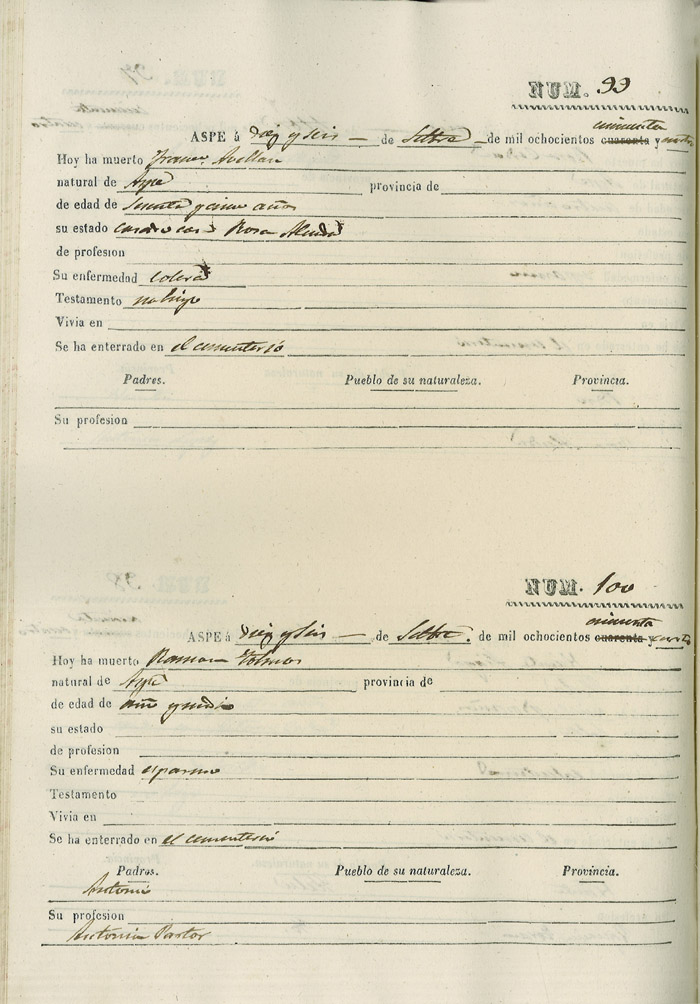 NUM. 99
cincuenta
ASPE á diez y seis de Setbre de mil ochocientos cuarenta y cuatro
Hoy ha muerto Franco. Avellan
natural de Aspe provincia de
de edad de y cinco años
su estado casado con Rosa
de profesion
Su enfermedad colera
Testamento no hizo
Vivia en
Se ha enterrado en el cementerio
Padres. Pueblo de su naturaleza. Provincia.
Su profesion
NUM. 100
cincuenta
ASPE á diez y seis de Setbre. de mil ochocientos cuarenta y cuatro
Hoy ha muerto Ramon
natural de Aspe provincia de
de edad de año y medio
su estado
de profesion
Su enfermedad espasmo
Testamento
Vivia en
Se ha enterrado en el cementerio
Padres. Pueblo de su naturaleza. Provincia.
Antonio
Su profesion
Antonia Pastor